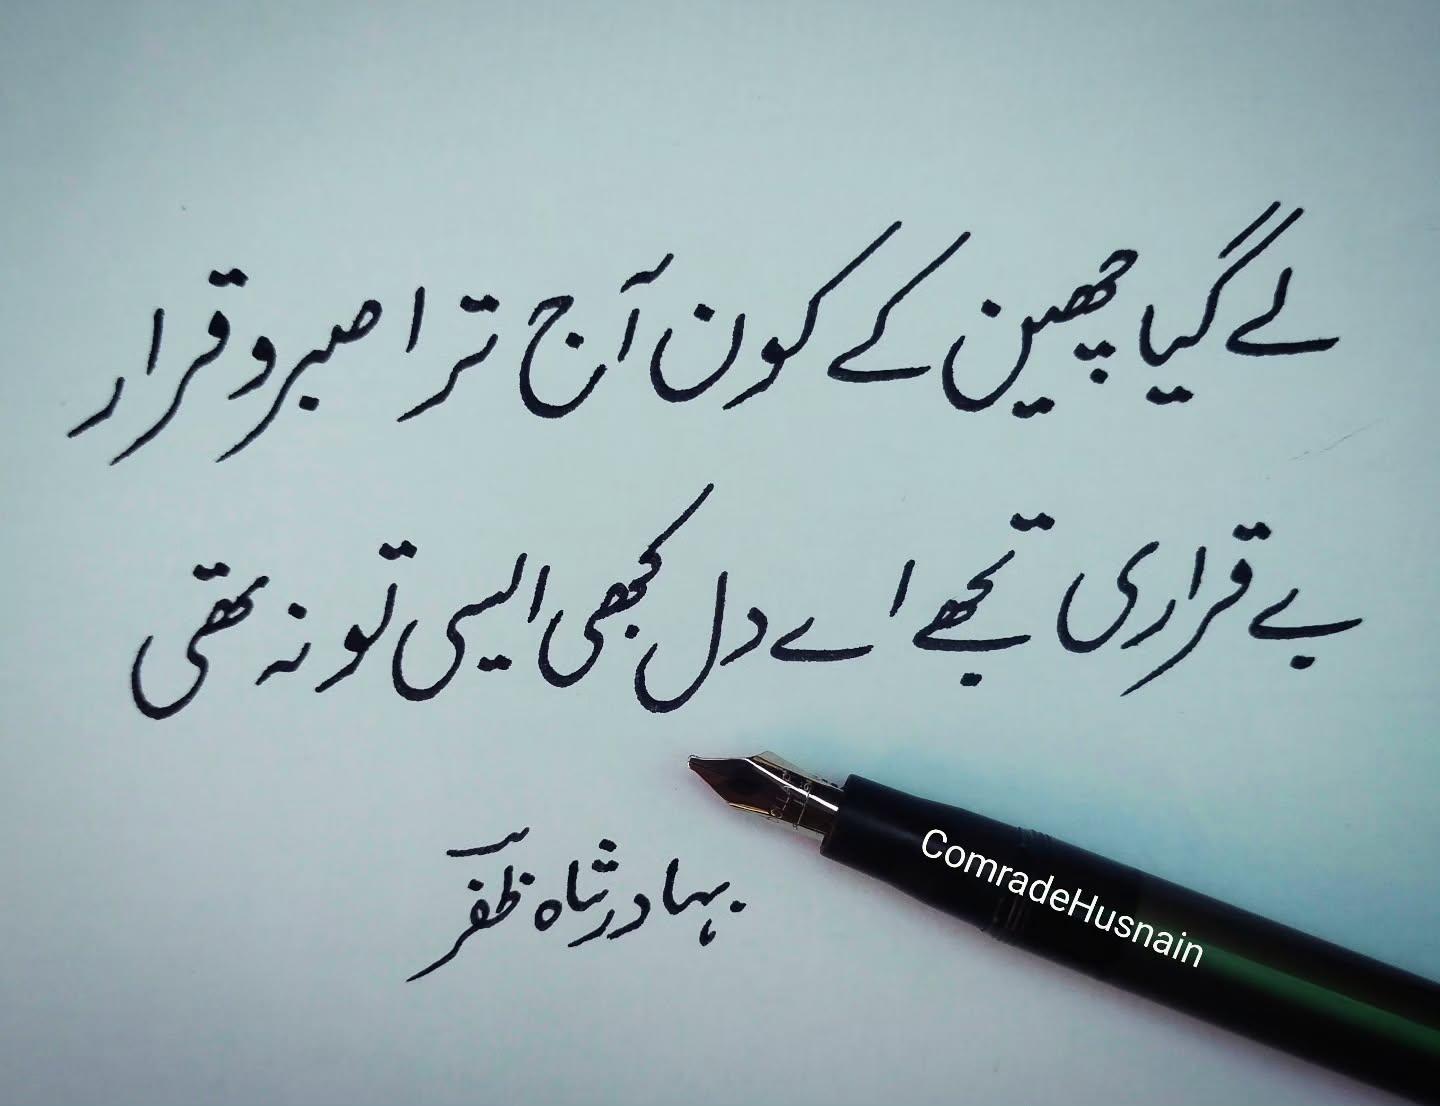 لے گیا چھین کے کون آج ترا صبر و قرار
بے قراری تجھے اے دل کبھی ایسی تو نہ تھی
بہادر شاہ ظفر
ComradeHusnain